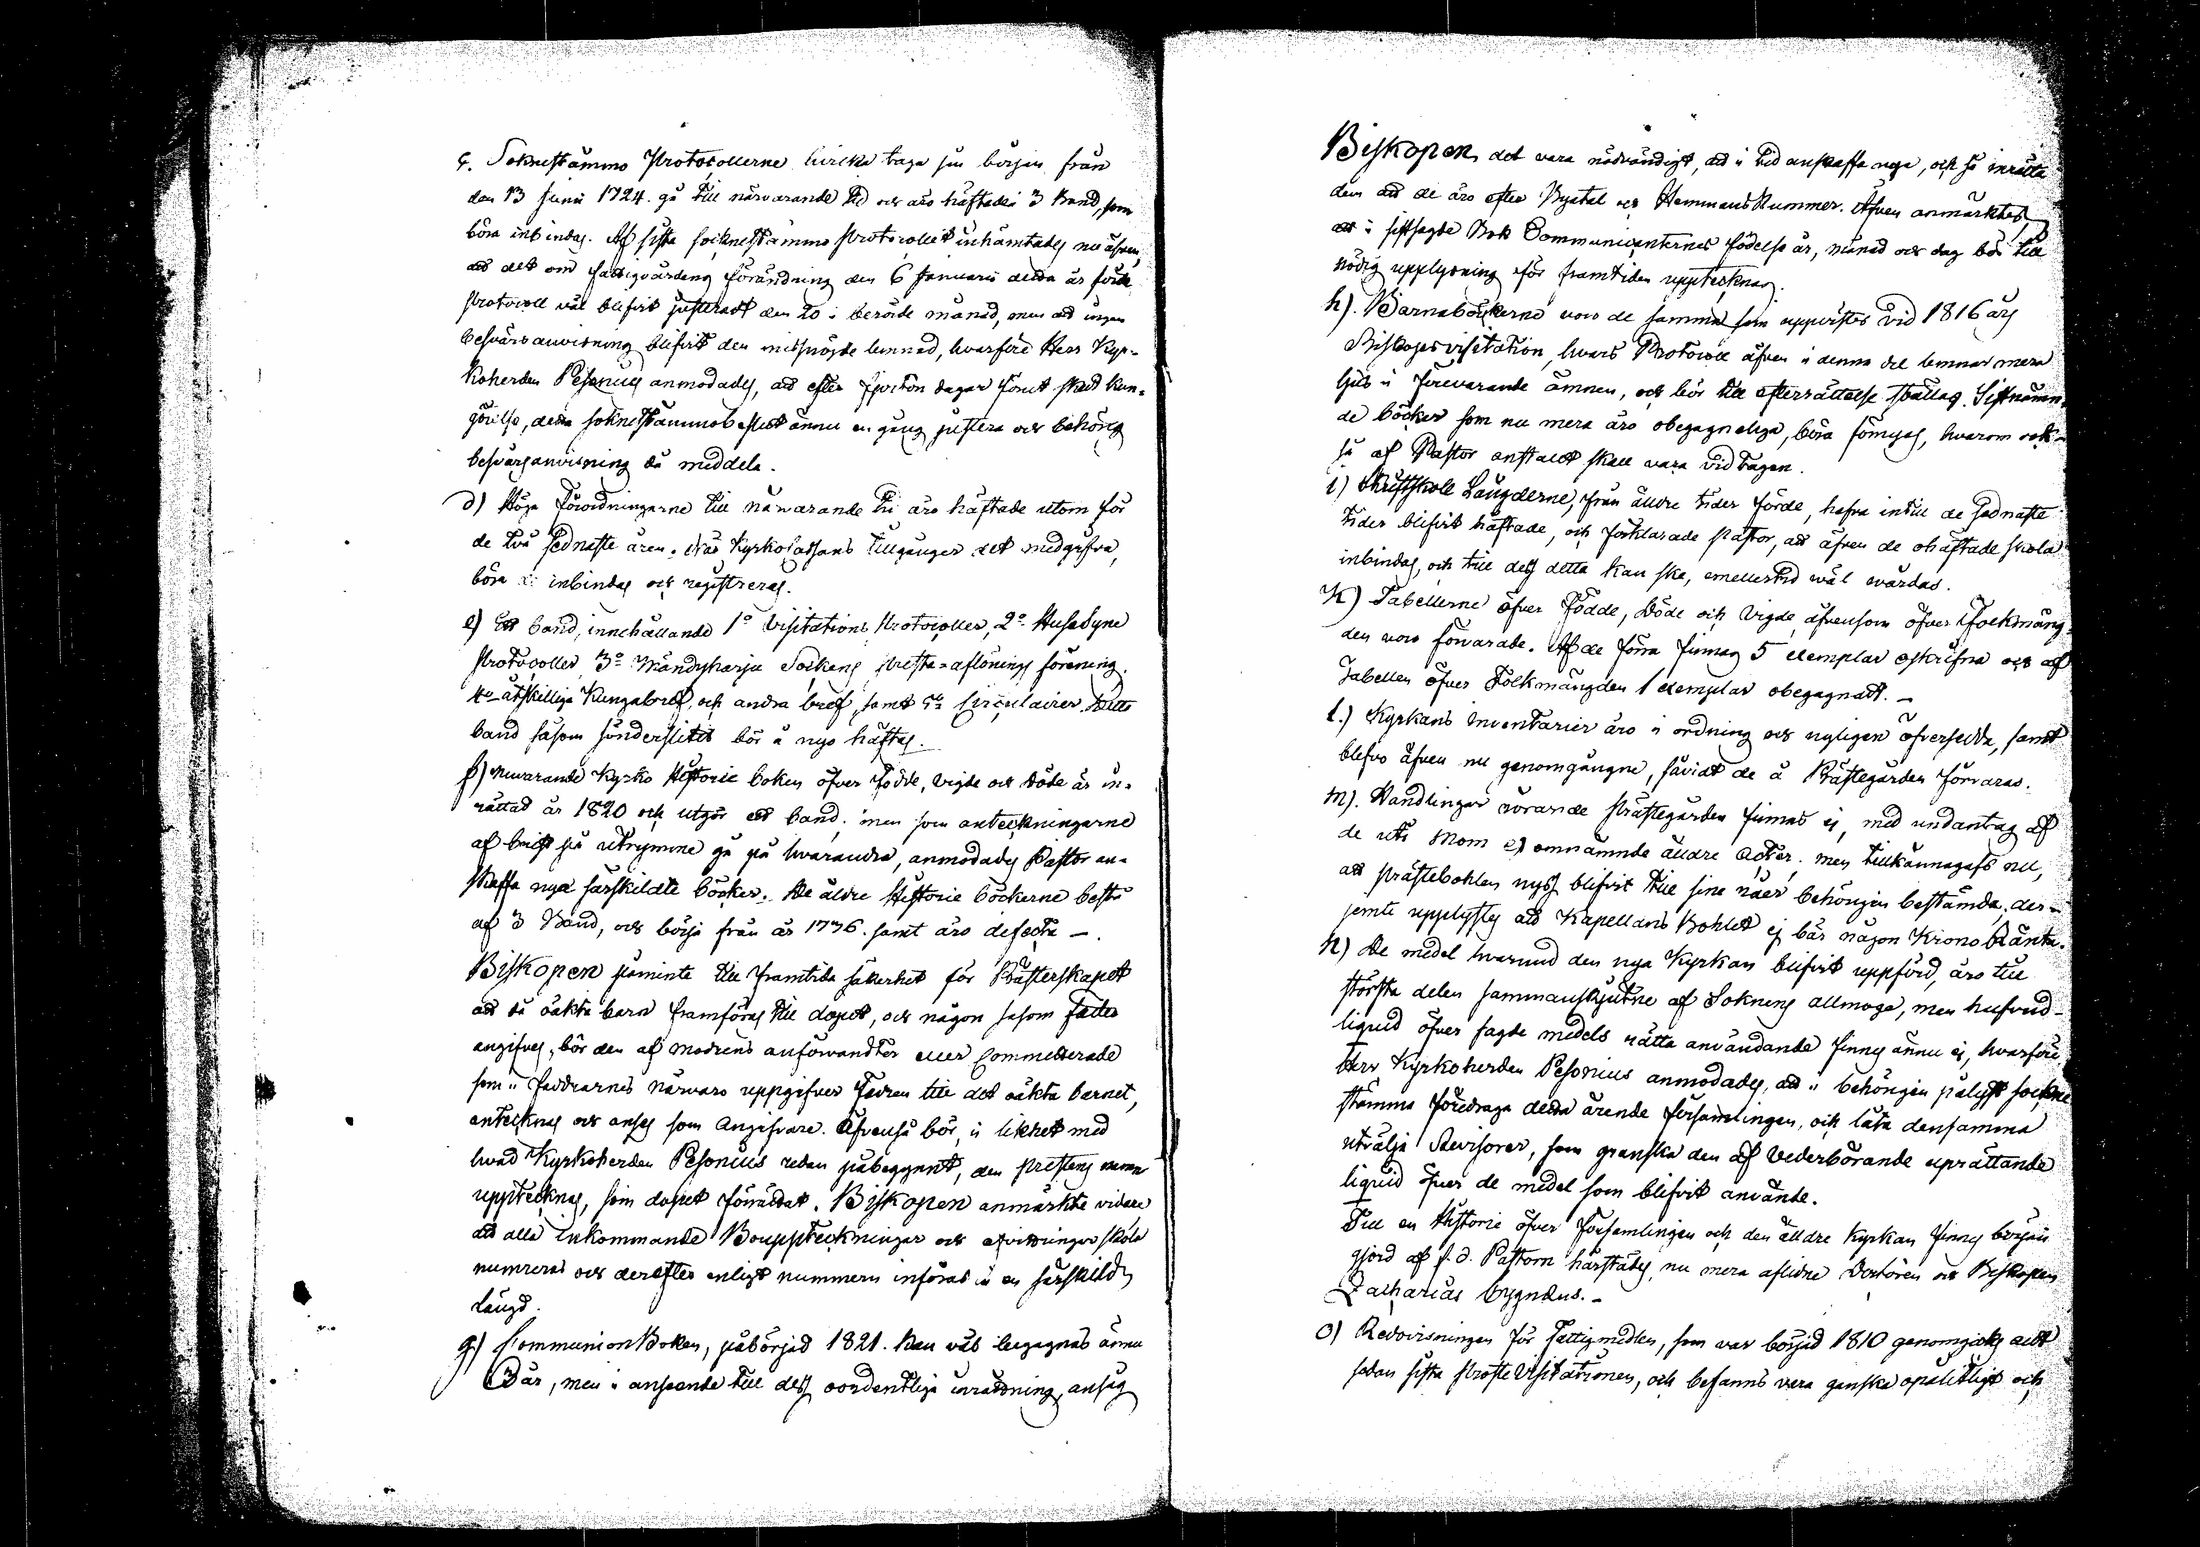 c. Soknestämmo Protocollerne hvilka taga sin början från
den 13 Junii 1724. gå till närvarande tid och äro häftade i 3 Band, som
böra inbindas. Af sista socknestämmo Protocollet inhämtades nu äfven,
att det om fattigvårdens förändring den 6 Januarii detta år förde
Protocoll väl blifvit justeradt den 20 i berörde månad, men att ingen
besvärsanvisning blifvit den missnöjde lemnad, hvarföre Herr Kyr-
koherden Pesonius anmodades, att efter fjorton dagar förut skedt kun-
görelse, detta soknestämmobeslut ännu en gång justera och behörig
besvärsanvisning då meddela.
d) Höga Förordningarne till närvarande tid äro häftade utom för
de två sednaste åren. När Kyrkocassans tillgångar det medgifva,
böra inbindas och registreras.
e) Ett band, innehållande 1o Visitations Protocoller, 2o Husesyne
Protocoller, 3o Mändyharju Sockens Presta-aflönings förening.
4o åtskillige Kungabref och andra bref, samt 5o Circulairer. Detta
band såsom sönderslitet bör å nyo häftas.
f) Nuvarande Kyrko Historie boken öfver födde, vigde och döde är in-
rättad år 1820 och utgör ett band; men som anteckningarne
af brist på utrymme gå på hvarandra, anmodades Pastor an-
skaffa nya särskildte böcker. De äldre Historie böckerne bestå
af 3 Band, och börja från år 1736. samt äro defecta —.
Biskopen påminte till framtida säkerhet för Prästerskapet
att då oäkta barn framföras till dopet, och någon såsom fader
angifves, bör den af modrens anförvandter eller Committerade
som i faddrarnes närvaro uppgifver fadren till det oäkta barnet,
antecknas och anses som Angifvare. Äfvenså bör, i likhet med
hvad Kyrkoherden Pesonius redan påbegynt, den Prestens namn
upptecknas, som dopet förrättat. Biskopen anmärkte vidare
att alla inkommande Bouppteckningar och afvittringar skola
numreras och derefter enligt nummern införas i en särskild
längd.
g) Communion Boken, påbörjad 1821. kan väl begagnas ännu
3 år, men i anseende till dess oordentliga inrättning, ansåg
Biskopen det vara nödvändigt, att i tid anskaffa nya, och så inrätta
dem att de äro efter Byatal och Hemmans Nummer. Äfven anmärktes,
att i sistsagde Bok Communicanternes födelse år, månad och dag bör till
nödig upplysning för framtiden upptecknas.
h). Barnaböckerne voro de samma som uppvistes vid 1816 års
Biskopsvisitation, hvars Protocoll äfven i denna del lemnar mera
ljus i förevarande ämnen, och bör till efterrättelse ställas. Sistnämn-
de böcker som nu mera äro obegagneliga, böra förnyas, hvarom ock-
så af Pastor anstalt skall vara vidtagen.
i) Skriftskole Längderne, från äldre tider förde, hafva intill de sednaste
tider blifvit häftade, och förklarade Pastor, att äfven de ohäftade skola
inbindas, och till dess detta kan ske, emellertid wäl wårdas.
K) Tabellerne öfver Födde, Döde och Vigde äfvensom öfver folkmäng-
den voro förvarade. Af de förra finnas 5 exemplar oskrifna och af
Tabellen öfver Folkmängden 1 exemplar obegagnadt. —
l.) Kyrkans inventarier äro i ordning och nyligen öfversedda, samt
blefvo äfven nu genomgångne, såvidt de å Prästegården förvaras.
m). Handlingar rörande Prästegården finnas ej, med undantag af
de uti Mom e) omnämnde äldre Acter; men tillkännagafs nu,
att Prästebohlen nyss blifvit till sine råer behörigen bestämda, der-
jemte upplystes att Kapellans Bohlet ej bär någon Krono Ränta.
n) De medel hvarmed den nya Kyrkan blifvit uppförd, äro till
största delen sammanskjutne af Soknens allmoge, men hufvud-
liquid öfver sagde medels rätta användande finnes ännu ej, hvarföre,
Herr Kyrkoherden Pesonius anmodades, att i behörigen pålyst sockne
stämma föredraga detta ärende församlingen, och låta densamma
utvälja Revisorer, som granska den af Vederbörande uprättande
liquid öfver de medel som blifvit använde.
Till en Historie öfver Församlingen och den äldre Kyrkan finnes början
gjord af f.d. Pastorn härstädes, nu mera aflidne Doctoren och Biskopen
Zacharias Cygnæus. —
o) Redovisningen för Fattigmedlen, som var börjad 1810 genomgicks allt
sedan sista Prosts Visitationen, och befanns vara ganska opålitligt och